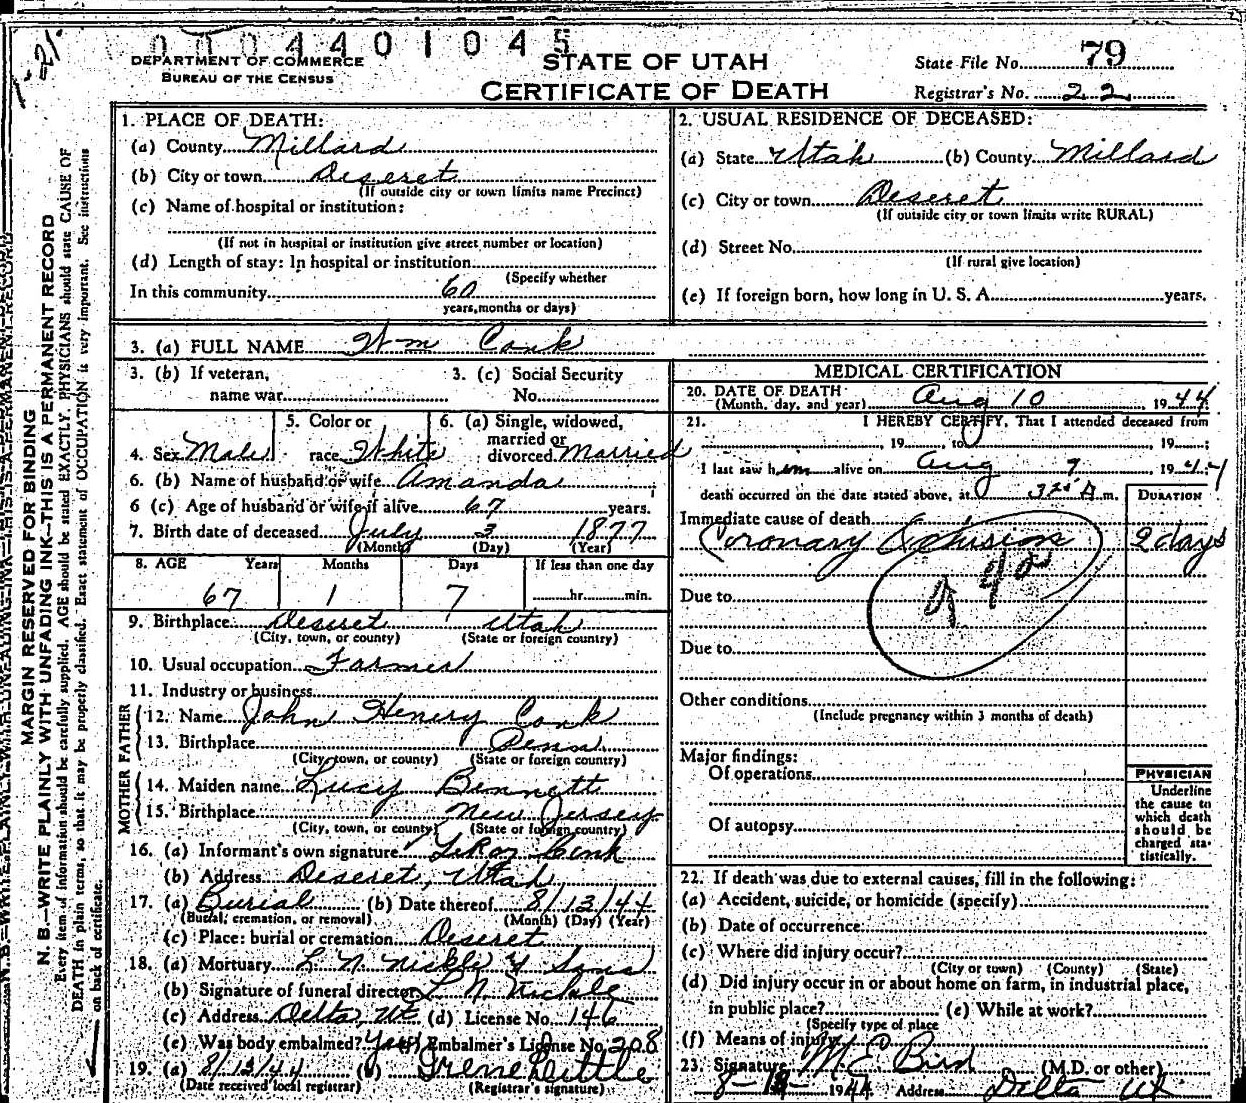 0004401045
DEPARTMENT OF COMMERCE
BUREAU OF THE CENSUS
STATE OF UTAH
CERTIFICATE OF DEATH
State File No. 79
Registrar's No. 22
MARGIN RESERVED FOR BINDING
N. B.—WRITE PLAINLY WITH UNFADING INK—THIS IS A PERMANENT RECORD
Every item of information should be carefully supplied. AGE should be stated EXACTLY. PHYSICIANS should state CAUSE OF
DEATH in plain terms, so that it may be properly classified. Exact statement of OCCUPATION is very important. See instructions
on back of certificate.
1. PLACE OF DEATH:
(a) County Millard
(b) City or town Deseret
(If outside city or town limits name Precinct)
(c) Name of hospital or institution:
(If not in hospital or institution give street number or location)
(d) Length of stay: In hospital or institution
(Specify whether
In this community 60
years, months or days)
2. USUAL RESIDENCE OF DECEASED:
(a) State Utah (b) County Millard
(c) City or town Deseret
(If outside city or town limits write RURAL)
(d) Street No.
(If rural give location)
(e) If foreign born, how long in U. S. A. years.
3. (a) FULL NAME Wm Conk
3. (b) If veteran, 3. (c) Social Security
name war No.
5. Color or 6. (a) Single, widowed,
married or
4. Sex Male race White divorced Married
6. (b) Name of husband or wife Amanda
6 (c) Age of husband or wife if alive 67 years.
7. Birth date of deceased July 3 1877
(Month) (Day) (Year)
8. AGE Years Months Days If less than one day
67 1 7 hr. min.
9. Birthplace Deseret Utah
(City, town, or county) (State or foreign country)
10. Usual occupation Farmer
11. Industry or business
FATHER
12. Name John Henry Conk
13. Birthplace Penn.
(City, town, or county) (State or foreign country)
MOTHER
14. Maiden name Lucy Bennett
15. Birthplace New Jersey
(City, town, or county) (State or foreign country)
16. (a) Informant's own signature LeRoy Conk
(b) Address Deseret, Utah
17. (a) Burial (b) Date thereof 8/13/44
(Burial, cremation, or removal) (Month) (Day) (Year)
(c) Place: burial or cremation Deseret
18. (a) Mortuary L. N. Nickle & Sons
(b) Signature of funeral director L N Nickle
(c) Address Delta, Ut (d) License No. 146
(e) Was body embalmed? Yes (f) Embalmer's License No. 208
19. (a) 8/13/44 (b) Irene Dittle
(Date received local registrar) (Registrar's signature)
MEDICAL CERTIFICATION
20. DATE OF DEATH
(Month, day, and year) Aug 10, 1944
21. I HEREBY CERTIFY, That I attended deceased from
19 to 19 ;
I last saw him alive on Aug 9 1944
death occurred on the date stated above, at 320 A m.
DURATION
Immediate cause of death
Coronary Occlusion 2 days
Due to
Due to
Other conditions
(Include pregnancy within 3 months of death)
Major findings:
Of operations
Of autopsy
PHYSICIAN
Underline
the cause to
which death
should be
charged sta-
tistically.
22. If death was due to external causes, fill in the following:
(a) Accident, suicide, or homicide (specify)
(b) Date of occurrence
(c) Where did injury occur?
(City or town) (County) (State)
(d) Did injury occur in or about home on farm, in industrial place,
in public place? (e) While at work?
(Specify type of place
(f) Means of injury
23. Signature M. E. Bird (M.D. or other)
1944 Address Delta Ut.